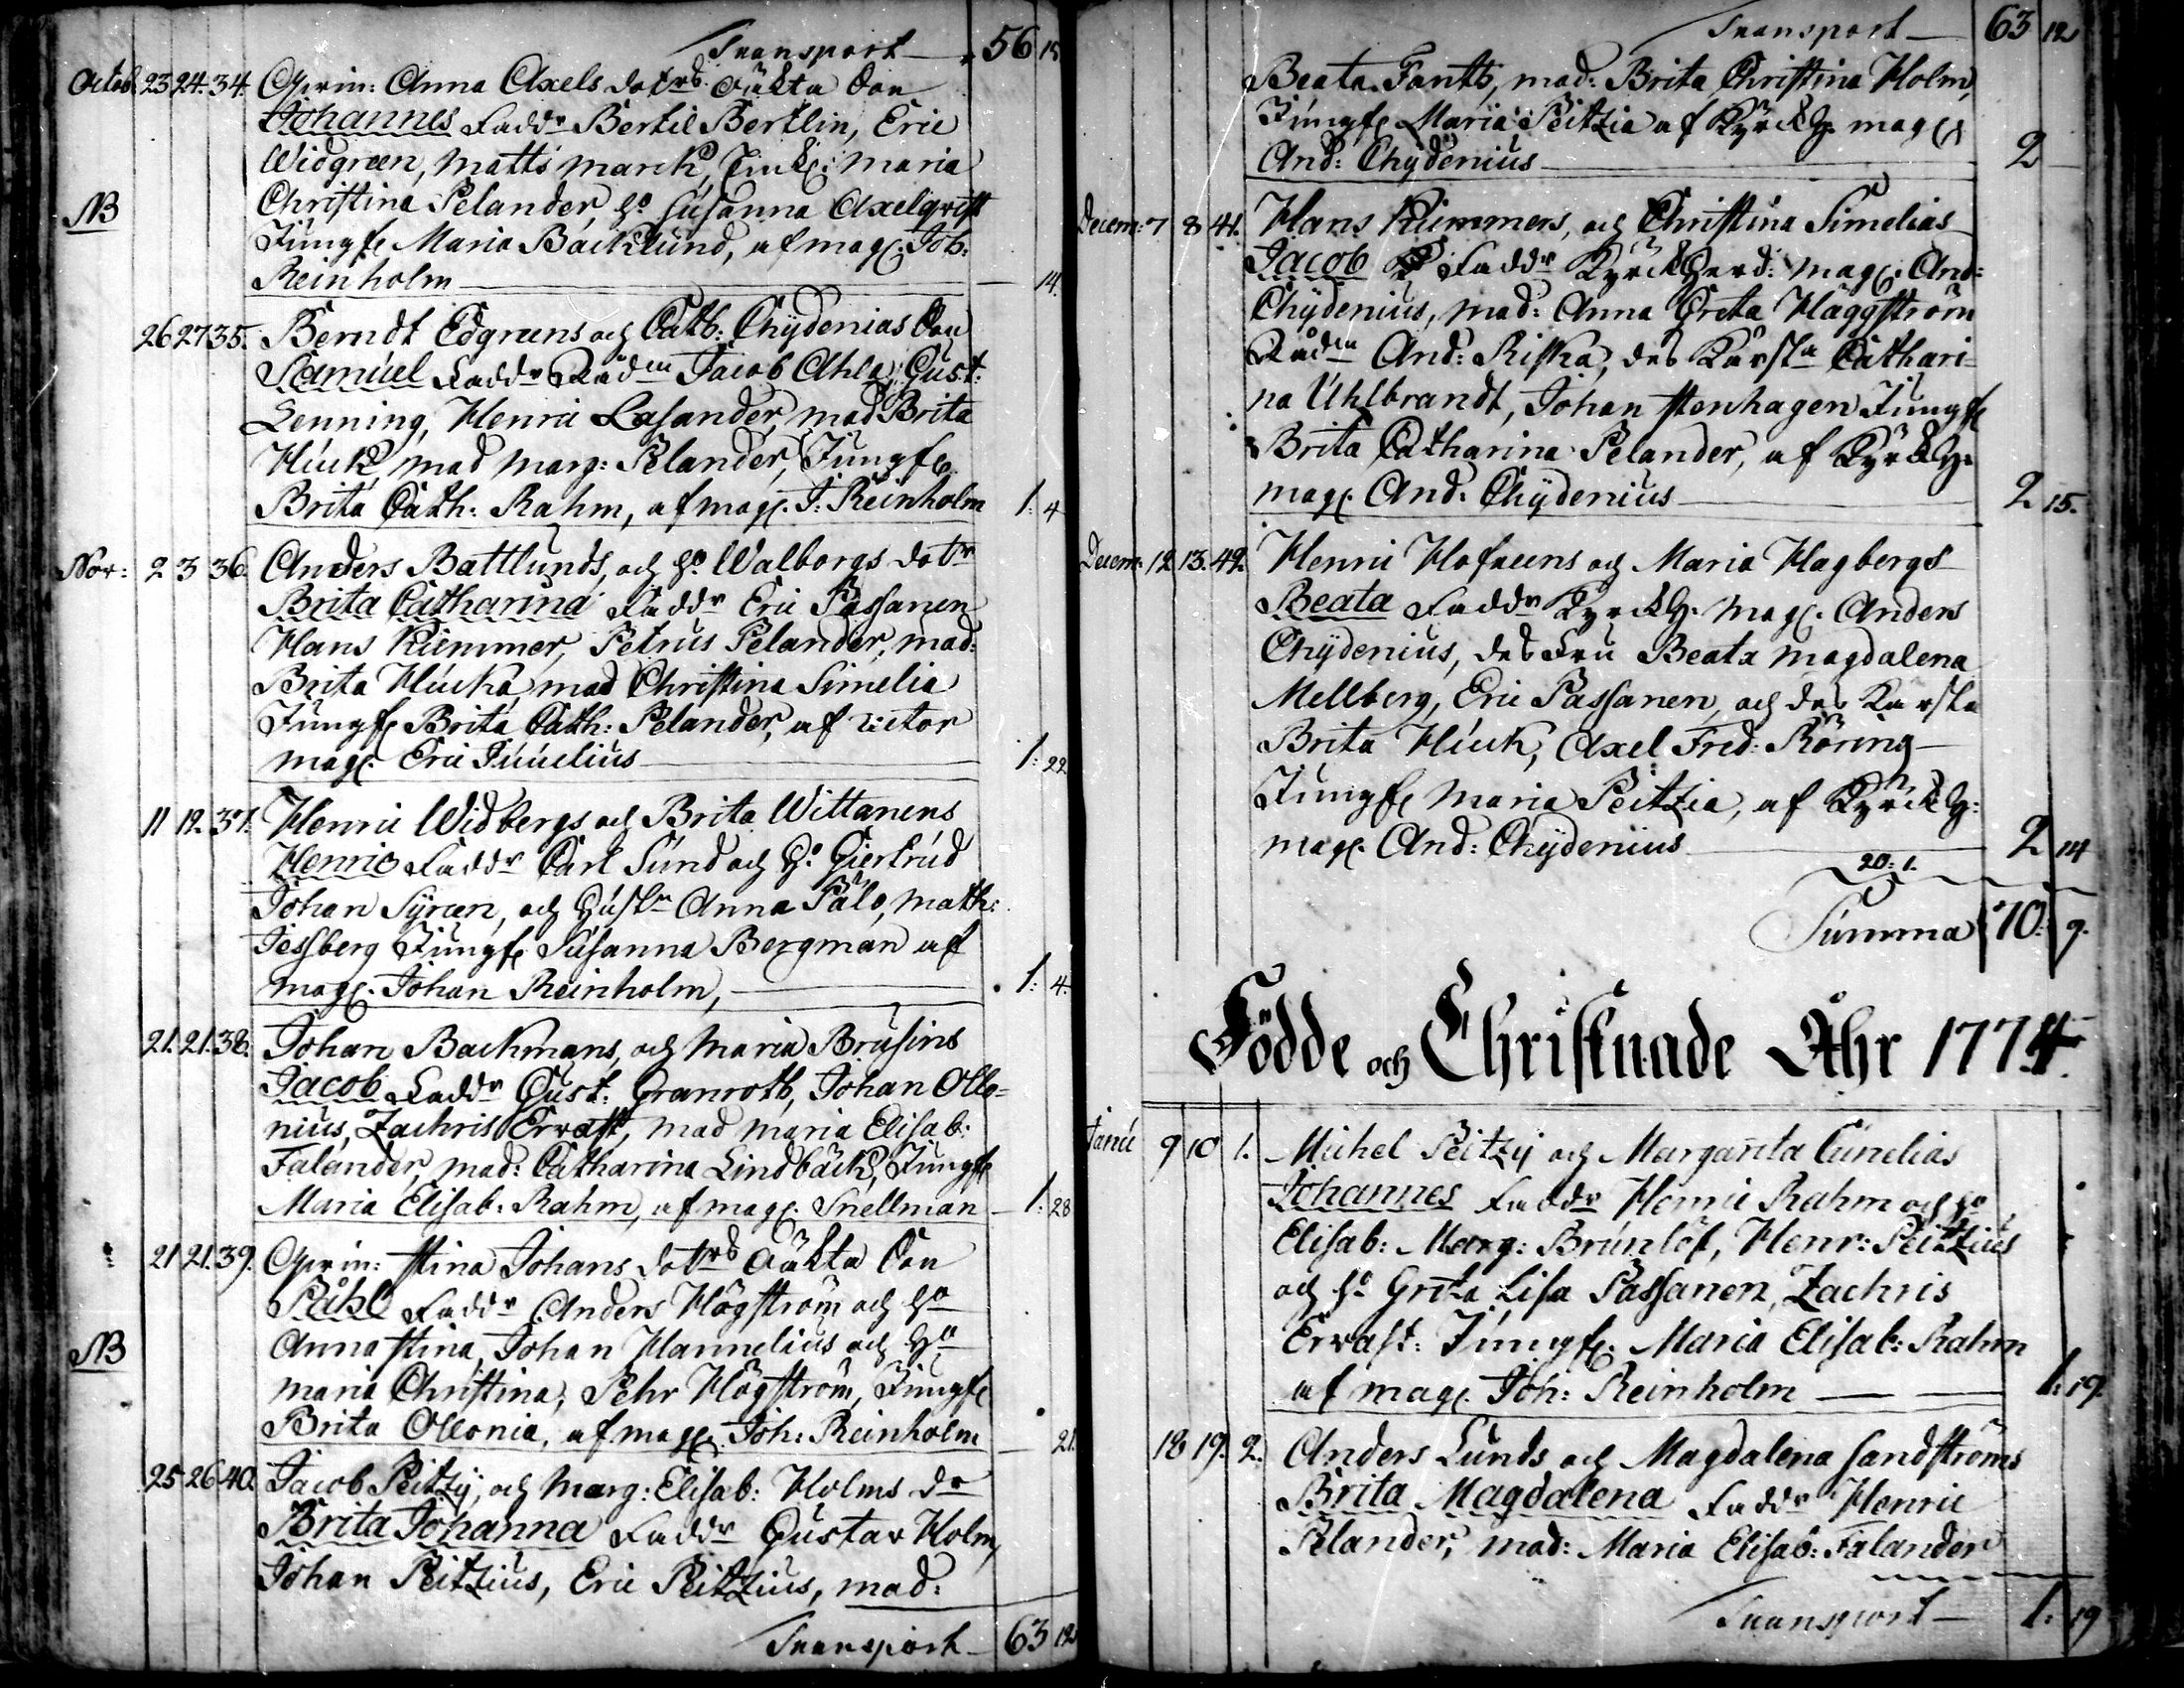 Transport — 56 15
Octob. 23 24. 34. Qwin: Anna Axels dotrs oäkta Son
Johannes Faddr Bertil Bertlin, Eric
Widgreen, Matts Marck, Enk: Maria
NB Christina Pelander, h° Susanna Axelqvist
Jungf. Maria Backlund, af mag. Joh:
Reinholm — 14.
26 27 35. Berndt Edgrens och Cath: Chydenias Son
Samuel Faddr Rådm Jacob Ahla, Gust:
Lenning, Henric Lasander, mad Brita
Huck, mad Marg: Pelander, Jungf.
Brita Cath: Rahm, af mag. J: Reinholm 1: 4
Nov: 2 3 36. Anders Battlunds, och h° Walborgs dotr
Brita Catharina Faddr Eric Passanen
Hans Kiemmer, Petrus Pelander, mad:
Brita Hucka, mad Christina Simelia
Jungf. Brita Cath: Pelander, af rector
mag. Eric — 1: 22
11 12. 37. Henric Widbergs och Brita Wittanens
Henric Faddr Carl Sund och h° Giertrud
Johan Syreen, och hustr Anna Palo, Math:
Jessberg Jungf. Susanna Bergman af
mag. Johan Reinholm, — 1: 4.
21. 21. 38. Johan Backmans, och Maria Brusins
Jacob Faddr Gust: Granroth, Johan Ollo=
nius, Zachris Ervast, mad Maria Elisab:
Falander, mad: Catharina Lindbäck, Jungf
Maria Elisab: Rahm, af mag. Snellman — 1: 28
21 21. 39. Qwin: Stina Johans dotrs oäkta Son
Påhl Faddr Anders Högström och h°
Anna Stina, Johan Hannelius och h°
NB Maria Christina, Pehr Högström, Jungf.
Brita Ollonia, af mag. Joh: Reinholm — 21.
25 26 40. Jacob Peitzij, och Marg: Elisab: Holms dr
Brita Johanna Faddr Gustav Holm,
Johan Peitzius, Eric Peitzius, mad:
Transport — 63 12
Transport — 63 12
Beata Fants, mad: Brita Christina Holm,
Jungf. Maria Peitzia af Kyrckh: mag.
And: Chydenius — 2
Decem: 7 8 41. Hans Kiemmers, och Christina Simelias
Jacob Faddr Kyrckherd: mag. And:
Chydenius, mad: Anna Greta Häggström
Rådm And: Riska, des Kärsta Cathari=
na Uhlbrandt, Johan Stenhagen Jungf
Brita Catharina Pelander, af Kyrckh:
mag. And: Chydenius — 2 15.
Decem: 12. 13. 42. Henric Hofreens och Maria Hagbergs
Beata Faddr Kyrckh: Mag. Anders
Chydenius, des Fru Beata Magdalena
Mellberg, Eric Passanen, och des Kärsta
Brita Huck, Axel Fred: Röring —
Jungf. Maria Peitzia, af Kyrckh:
mag. And: Chydenius — 2 14
20: 1.
Summa 70: 9.
Födde och Christnade Åhr 1774.
Janu 9 10 1. Michel Peitzij och Margareta Cunelias
Johannes Faddr Henric Rahm och h°
Elisab: Marg: Brunlöf, Henr: Peitzius
och h° Greta Lisa Passanen, Zachris
Ervast: Jungf. Maria Elisab: Rahm
af mag. Joh: Reinholm — 1: 19.
18 19. 2. Anders Lunds och Magdalena Sandströms
Brita Magdalena Faddr Henric
Pelander, mad: Maria Elisab: Falander
Transport — 1: 19